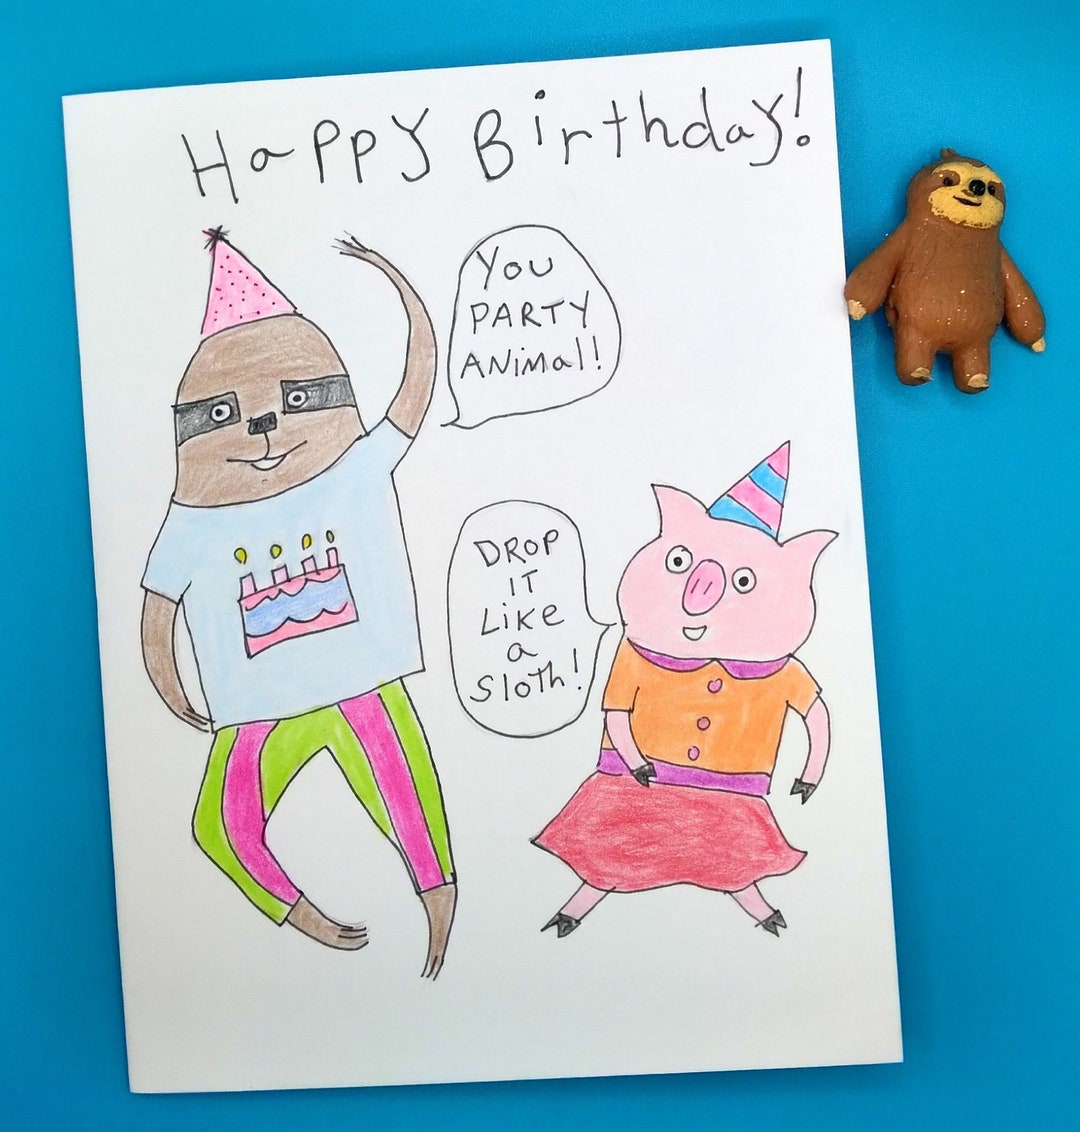 Happy Birthday!
You
PARTY
ANimal!
DROP
IT
Like
a
Sloth!